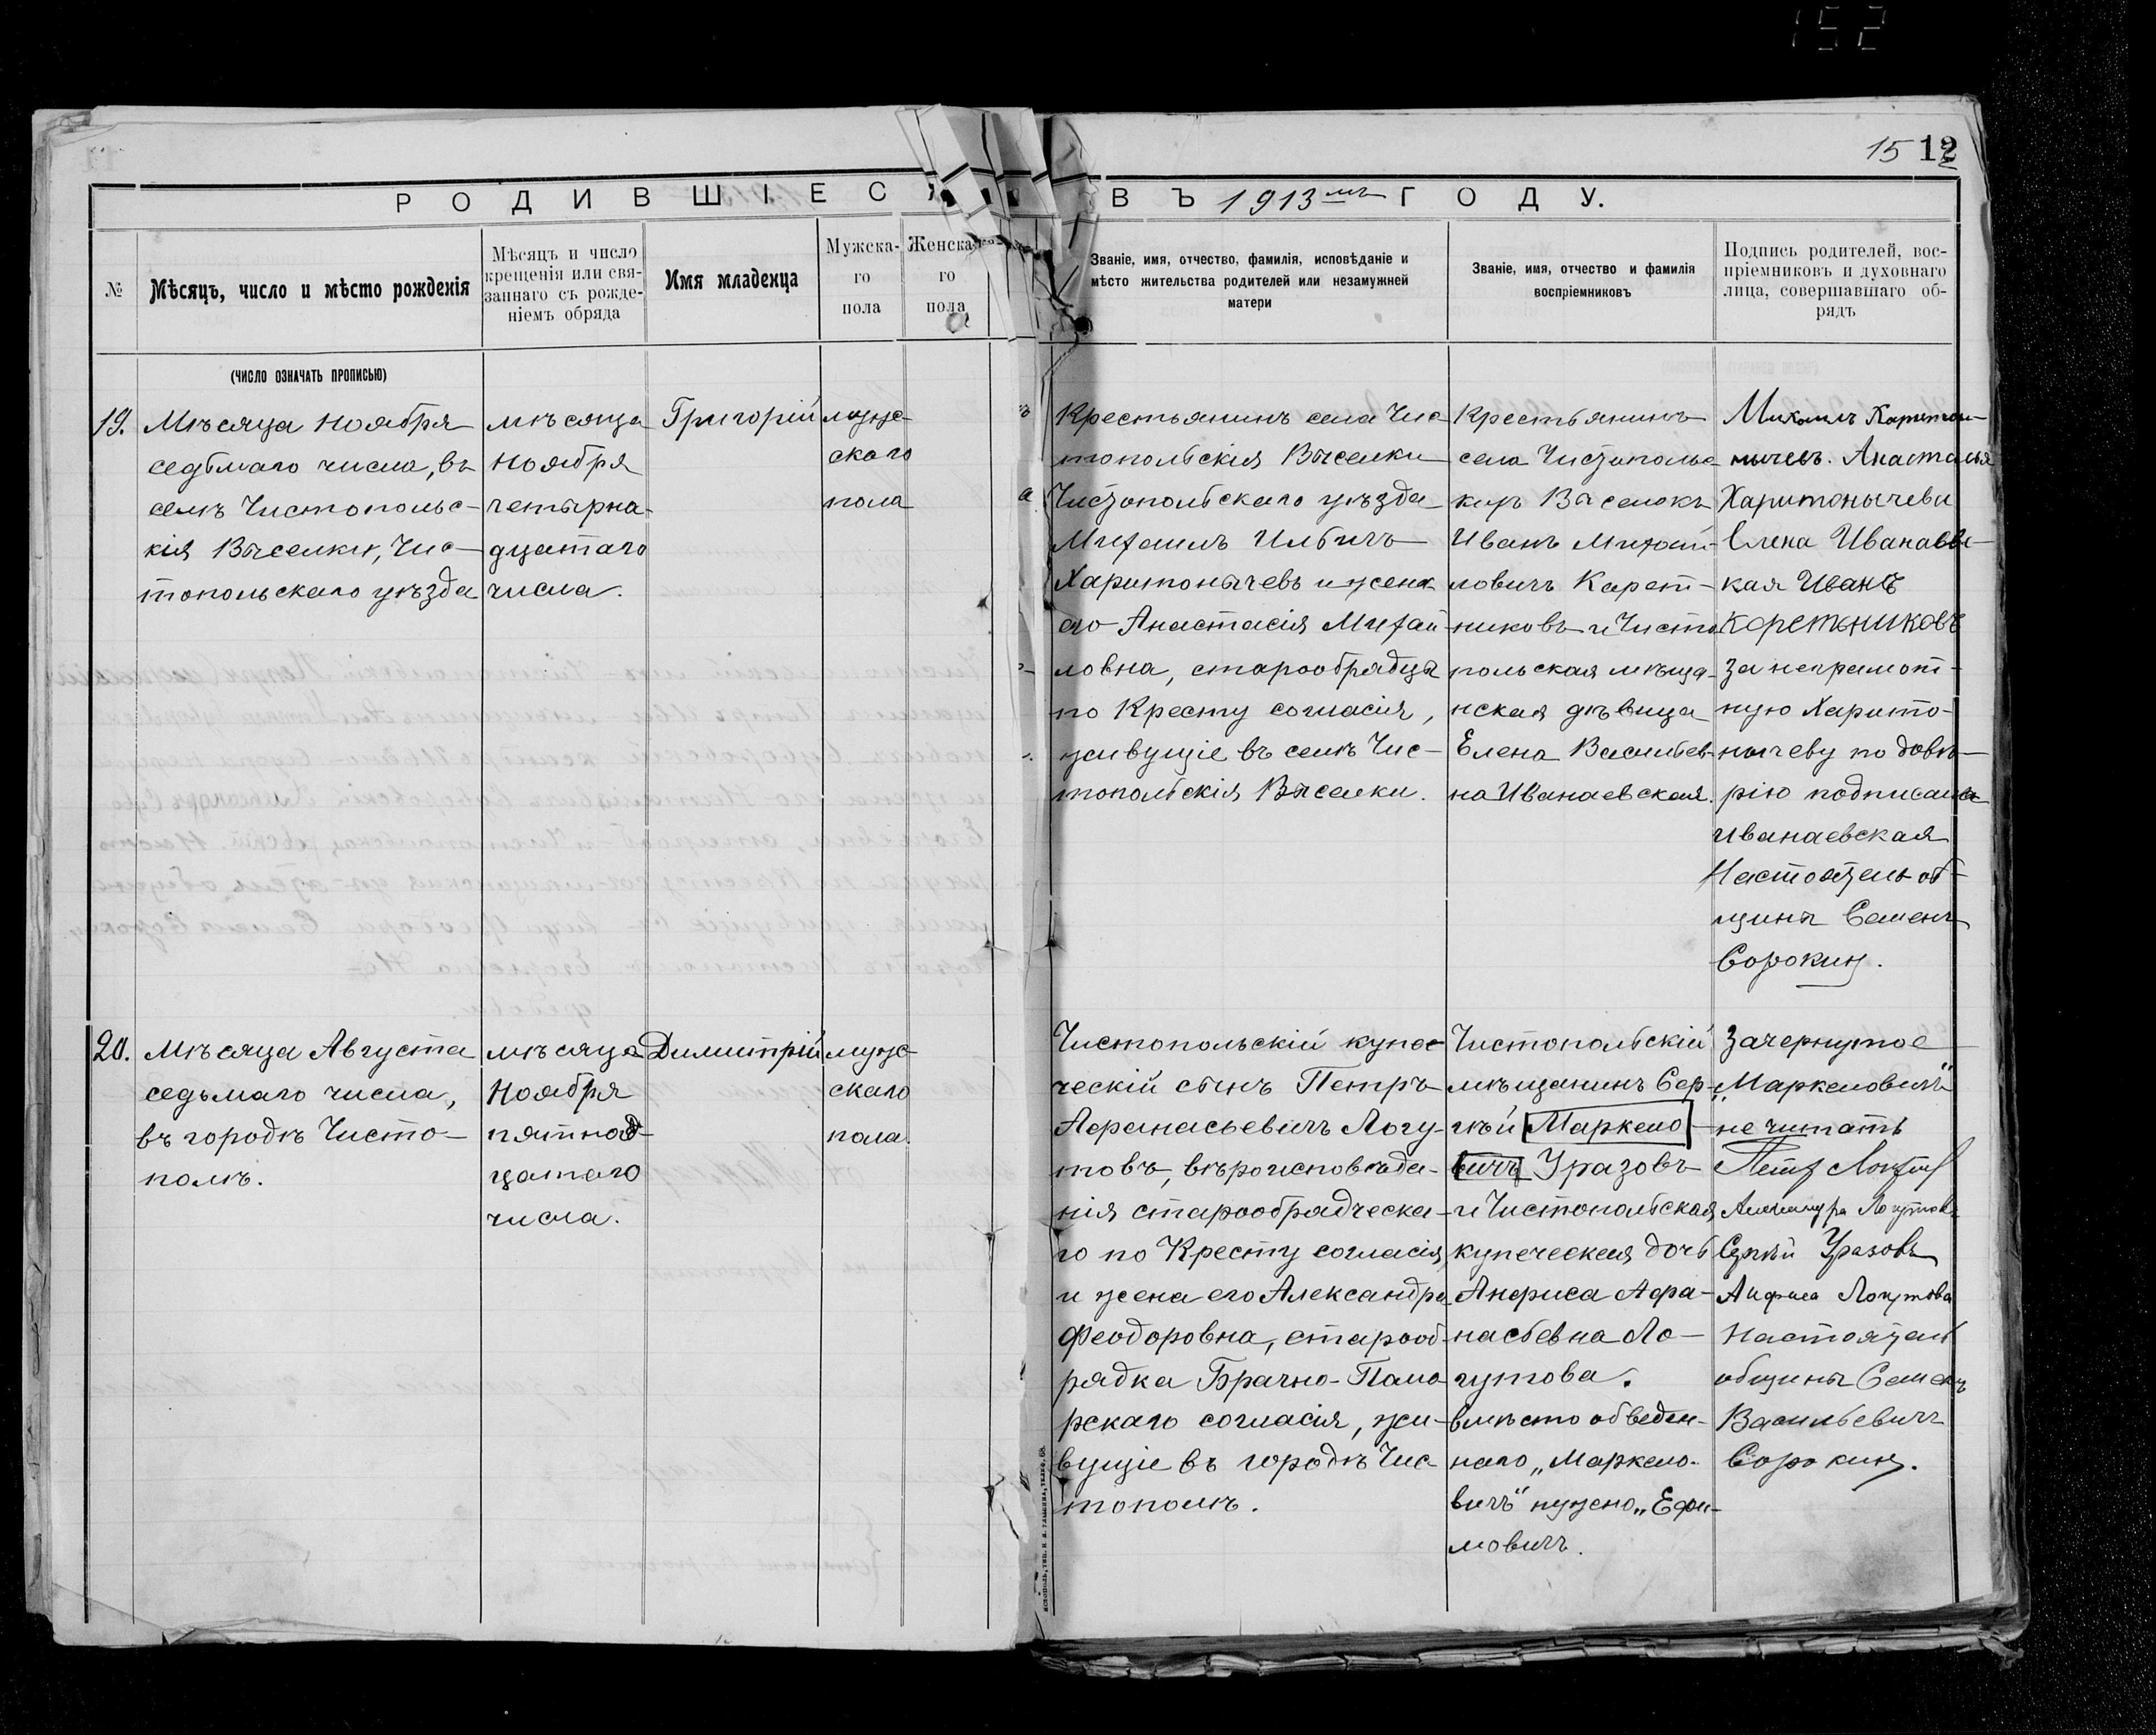 152
15 12
РОДИВШІЕСЯ ВЪ 1913мъ ГОДУ.
№
Мѣсяцъ, число и мѣсто рожденія
Мѣсяцъ и число
крещенія или свя-
заннаго съ рожде-
ніемъ обряда
Имя младенца
Мужска-
го
пола
Женска-
го
пола
Званіе, имя, отчество, фамилія, исповѣданіе и
мѣсто жительства родителей или незамужней
матери
Званіе, имя, отчество и фамилія
воспріемниковъ
Подпись родителей, вос-
пріемниковъ и духовнаго
лица, совершавшаго об-
рядъ
(ЧИСЛО ОЗНАЧАТЬ ПРОПИСЬЮ)
19.
Мѣсяца Ноября
седьмаго числа, въ
селѣ Чистопольс-
кія Выселки, Чис-
топольскаго уѣзда
мѣсяца
Ноября
четырна-
дцатаго
числа.
Григорій
мужс-
скаго
пола
Крестьянинъ села Чис-
топольскія Выселки
Чистопольскаго уѣзда
Михаилъ Ильичъ
Харитонычевъ и жена
его Анастасія Михай-
ловна, старообрядцы
по Кресту согласія,
живущіе въ селѣ Чис-
топольскія Выселки.
Крестьянинъ
села Чистопольс-
кихъ Выселокъ
Иванъ Михай-
ловичъ Карет-
никовъ и Чисто
польская мѣща-
нская дѣвица
Елена Васильев-
на Иванаевская.
Михаилъ Харитон-
ычевъ. Анастасья
Харитонычева
Елена Иванаевс-
кая Иванъ
Коретниковъ
За неграмот-
ную Харито-
нычеву по довѣ-
рію подписалась
Иванаевская
Настоятель об-
щины Семенъ
Сорокинъ.
20.
Мѣсяца Августа
седьмаго числа,
въ городѣ Чисто-
полѣ.
мѣсяца
Ноября
пятнад-
цатаго
числа.
Димитрій
мужс-
скаго
пола.
Чистопольскій купе-
ческій сынъ Петръ
Афанасьевичъ Логу-
товъ, вѣроисповѣда-
нія старообрядческа-
го по Кресту согласія,
и жена его Александра
Феодоровна, старооб-
рядка Брачно-Помо-
рскаго согласія, жи-
вущіе въ городѣ Чис-
тополѣ.
Чистопольскій
мѣщанинъ Сер-
гѣй Маркело-
вичъ Уразовъ
и Чистопольская
купеческая дочь
Анфиса Афа-
насьевна Ло-
гутова.
вмѣсто обведен-
наго „Маркело-
вичъ“ нужно „Ефи-
мовичъ.
Зачернутое
„Маркеловичъ“
не читать
Петръ Логутовъ
Александра Логутова
Сергѣй Уразовъ
Анфиса Логутова
Настоятель
общины Семенъ
Васильевичъ
Сорокинъ.